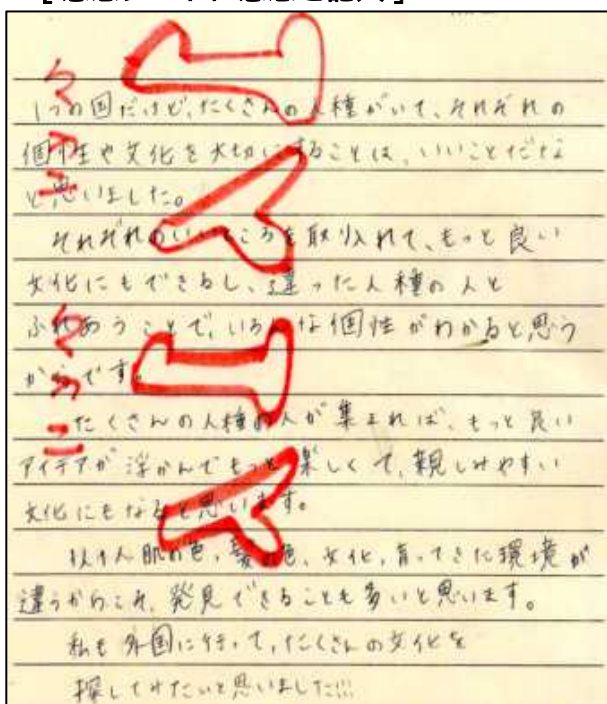 1つの国だけど、たくさんの人種がいて、それぞれの
個性や文化を大切にすることは、いいことだな
と思いました。
それぞれのいいところを取り入れて、もっと良い
文化にもできるし、違った人種の人と
ふれあうことで、いろんな個性がわかると思う
からです。
たくさんの人種の人が集まれば、もっと良い
アイデアが浮かんでもっと楽しくて、親しみやすい
文化にもなると思います。
1人1人肌の色、髪の色、文化、育ってきた環境が
違うからこそ、発見できることも多いと思います。
私も外国に行って、たくさんの文化を
探してみたいと思いました!!!